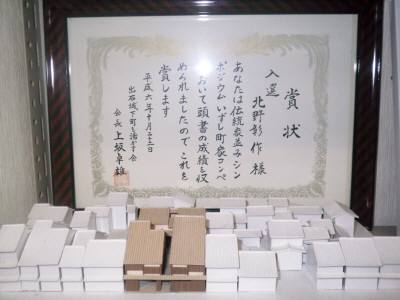 賞状
入選
北野彰作様
あなたは伝統家並みシン
ポジウムいずし町家コンペ
において頭書の成績を収
められましたのでこれを
賞します
平成六年十月二十二日
出石城下町を活かす会
会長上坂卓雄